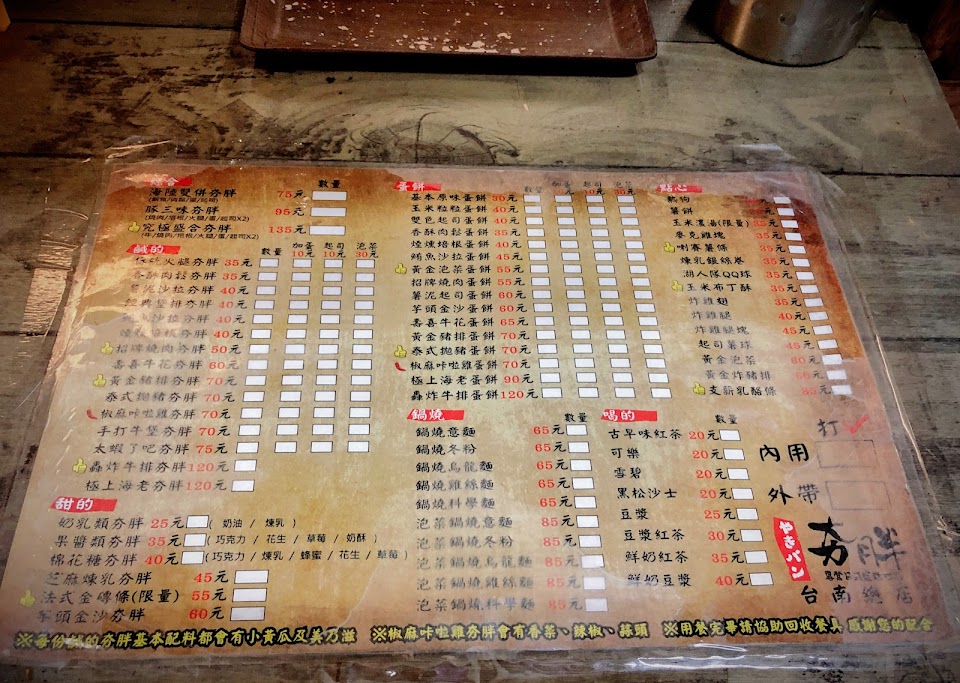 綜合 數量
海陸雙併夯胖 75元
豚三味夯胖 95元
(燒肉/培根/火腿/蛋/起司X2)
究極盛合夯胖 135元
(牛/燒肉/培根/火腿/蛋/起司X2)
鹹的 數量 加蛋10元 起司10元 泡菜30元
火腿夯胖 35元
香酥肉鬆夯胖 35元
薯泥沙拉夯胖 40元
經典堡排夯胖 40元
沙拉夯胖 40元
培根夯胖 40元
招牌燒肉夯胖 50元
壽喜牛花夯胖 60元
黃金豬排夯胖 70元
泰式拋豬夯胖 70元
椒麻咔啦雞夯胖 70元
手打牛堡夯胖 70元
太蝦了吧夯胖 75元
轟炸牛排夯胖 120元
極上海老夯胖 120元
甜的
奶乳類夯胖 25元 ( 奶油 / 煉乳 )
果醬類夯胖 35元 ( 巧克力 / 花生 / 草莓 / 奶酥 )
棉花糖夯胖 40元 ( 巧克力 / 煉乳 / 蜂蜜 / 花生 / 草莓 )
芝麻煉乳夯胖 45元
法式金磚條(限量) 55元
芋頭金沙夯胖 60元
蛋餅 數量 加蛋 起司 泡菜
基本原味蛋餅 30元
玉米粒粒蛋餅 40元
雙色起司蛋餅 40元
香酥肉鬆蛋餅 40元
煙燻培根蛋餅 40元
鮪魚沙拉蛋餅 45元
黃金泡菜蛋餅 55元
招牌燒肉蛋餅 55元
薯泥起司蛋餅 60元
芋頭金沙蛋餅 60元
壽喜牛花蛋餅 65元
黃金豬排蛋餅 70元
泰式拋豬蛋餅 70元
椒麻咔啦雞蛋餅 70元
極上海老蛋餅 90元
轟炸牛排蛋餅 120元
鍋燒 數量
鍋燒意麵 65元
鍋燒冬粉 65元
鍋燒烏龍麵 65元
鍋燒雞絲麵 65元
鍋燒科學麵 65元
泡菜鍋燒意麵 85元
泡菜鍋燒冬粉 85元
泡菜鍋燒烏龍麵 85元
泡菜鍋燒雞絲麵 85元
泡菜鍋燒科學麵 85元
點心
熱狗
薯餅
玉米濃湯(限量) 35元
麥克雞塊 35元
喇賽薯條 35元
煉乳銀絲卷 35元
湖人隊QQ球 35元
玉米布丁酥 35元
炸雞翅 35元
炸雞腿 40元
炸雞腿塊 45元
起司薯球
黃金泡菜
黃金炸豬排
支薪乳酪條
喝的 數量
古早味紅茶 20元
可樂 20元
雪碧 20元
黑松沙士 20元
豆漿 25元
豆漿紅茶 30元
鮮奶紅茶 35元
鮮奶豆漿 40元
打✓
內用
外帶
やきパン
夯胖
台南總店
※每份鹹的夯胖基本配料都會有小黃瓜及美乃滋 ※椒麻咔啦雞夯胖會有香菜、辣椒、蒜頭 ※用餐完畢請協助回收餐具 感謝您的配合